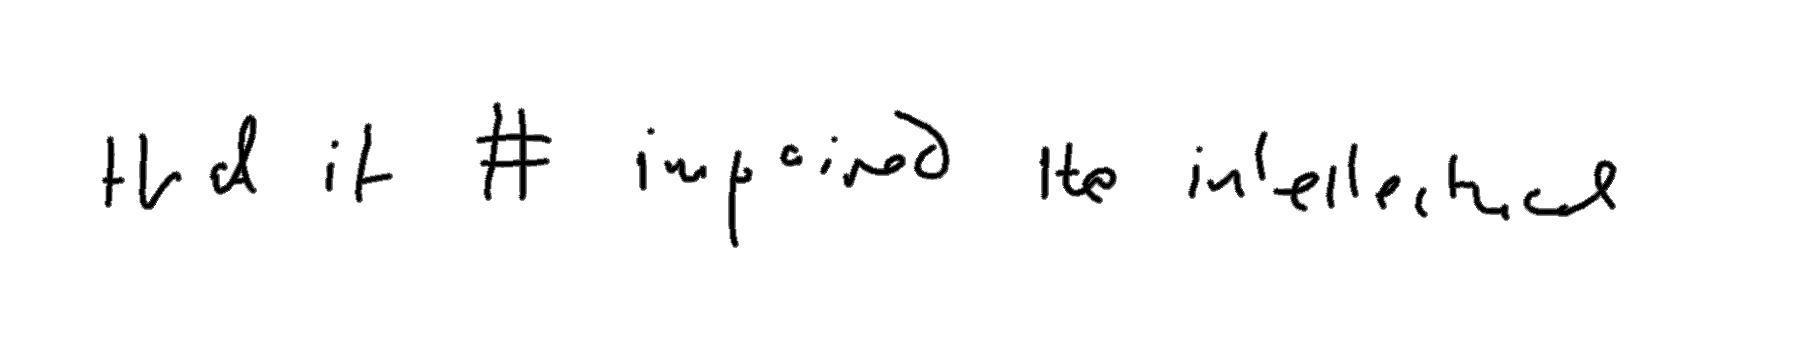 that it # impaired the intellectual